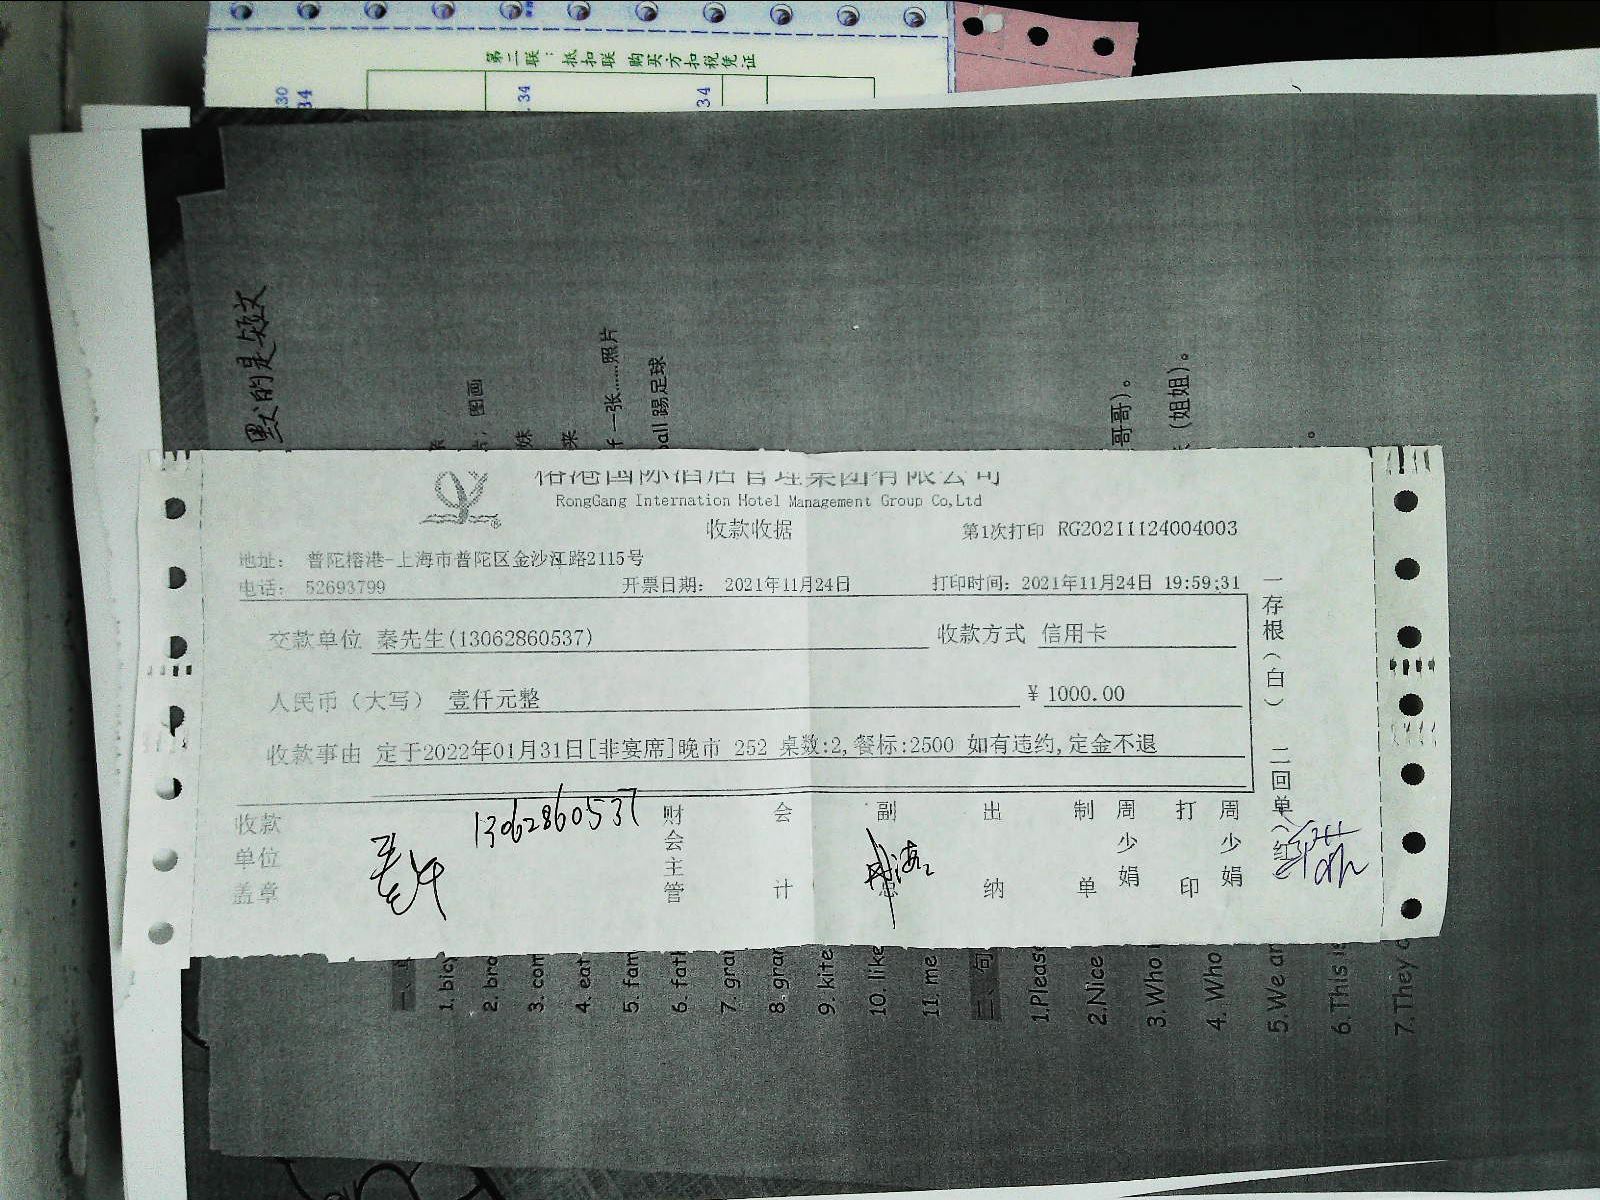 第二联：抵扣联 购买方扣税凭证
.30
34
.34
34
默的是
图画
妹
来
f 一张……照片
ball 踢足球
哥哥）。
（姐姐）。
榕港国际酒店管理集团有限公司
RongGang Internation Hotel Management Group Co,Ltd
收款收据
第1次打印 RG20211124004003
地址： 普陀榕港-上海市普陀区金沙江路2115号
电话： 52693799 开票日期： 2021年11月24日 打印时间：2021年11月24日 19:59:31
交款单位 秦先生(13062860537) 收款方式 信用卡
人民币（大写） 壹仟元整 ￥1000.00
收款事由 定于2022年01月31日[非宴席]晚市 252 桌数:2,餐标:2500 如有违约,定金不退
一存根（白） 二回单（红）
收款单位盖章
13062860537
财会主管
会计
副总
出纳
制单
周少娟
打印
周少娟
一、
1. bicy
2. bro
3. com
4. eat
5. fam
6. fath
7. gran
8. gran
9. kite
10. like
11 me
二、句
1.Please
2.Nice
3.Who
4. Who
5.We ar
6.This is
7.They